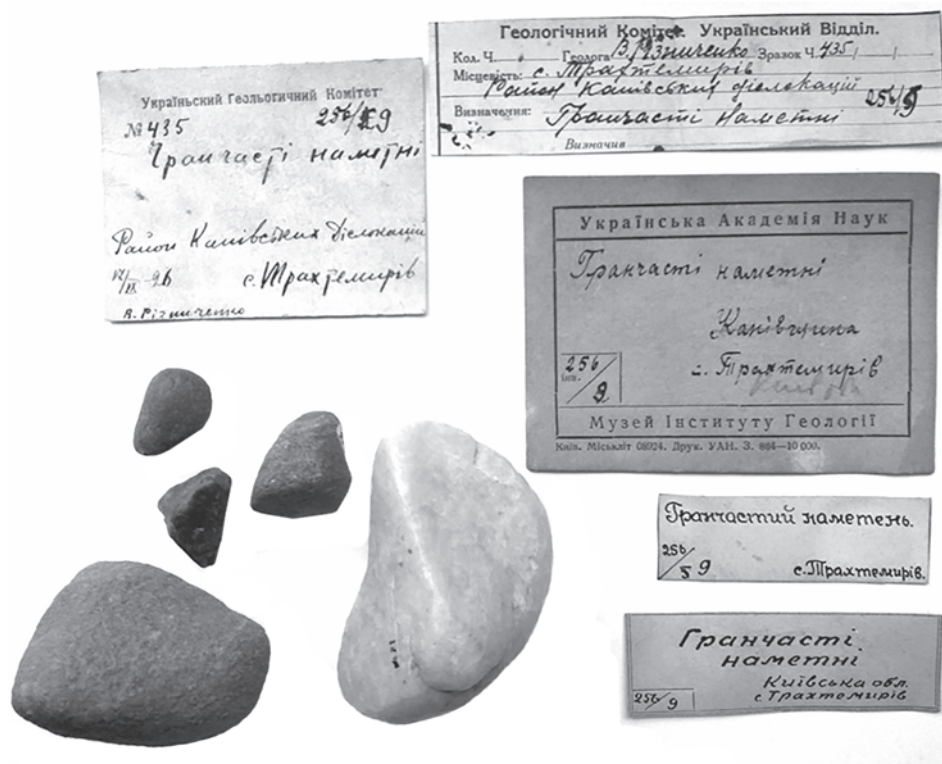 Український Геольогичний Комітет
№ 435 256/9
Гранчасті наметні
Район Канівських Діслокацій
с. Трахтемирів
В. Різниченко
Геологічний Комітет. Український Відділ.
Кол. Ч. Геолога В. Різниченко Зразок Ч. 435
Місцевість: с. Трахтемирів
Район Канівських діслокацій
Визначення: Гранчасті наметні 256/9
Визначив
Українська Академія Наук
Гранчасті наметні
Канівщина
с. Трахтемирів
256/9
інв.
Музей Інституту Геології
Київ. Міськліт 08924. Друк. УАН. З. 864—10 000.
Гранчастий наметень.
256/5 9 с. Трахтемирів.
Гранчасті
наметні
Київська обл.
с. Трахтомирів
256/9